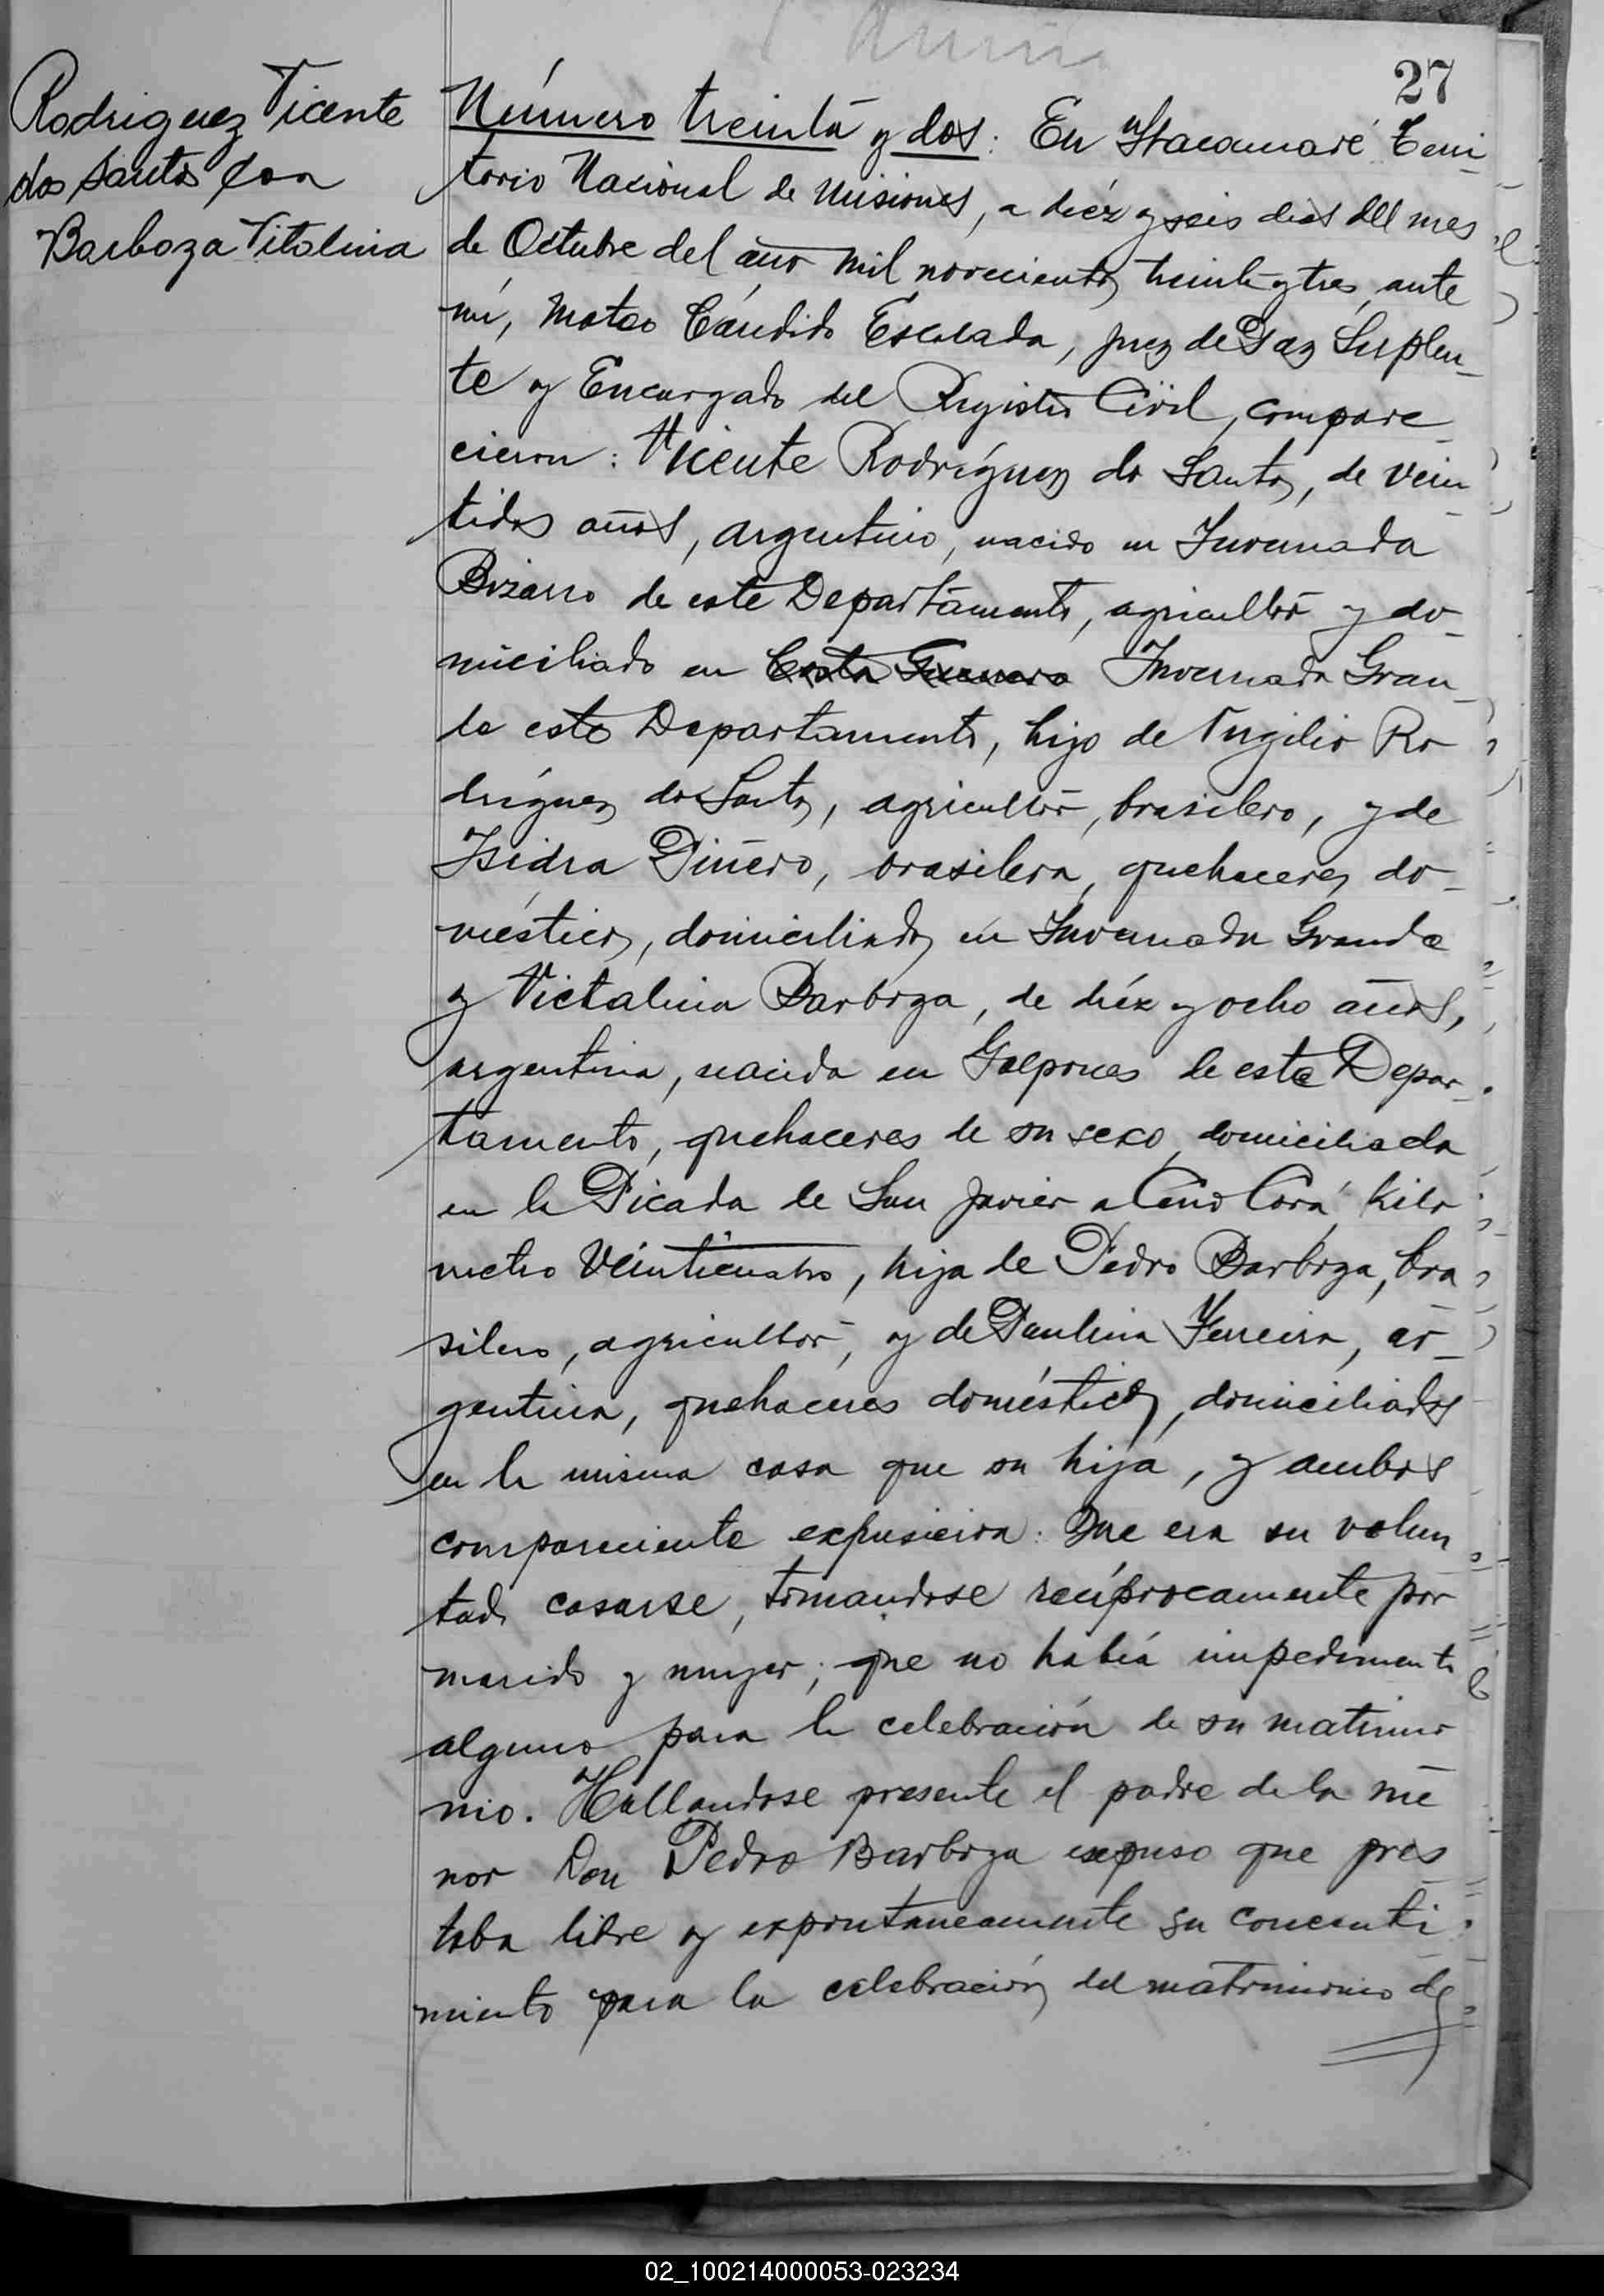 27
Rodriguez Vicente
dos Santos con
Barboza Vitalina
Número treinta y dos: En Itacaruaré Terri
torio Nacional de Misiones, a diéz y seis dias del mes
de Octubre del año mil novecientos treinta y tres, ante
mí, Mateo Cándido Escalada, Juez de Paz Suplen_
te y Encargado del Registro Civil, compare_
cieron: Vicente Rodríguez do Santos, de vein_
tidos años, argentino, nacido en Invernada
Bizarro de este Departamento, agricultor y do_
miciliado en Costa Guerrero Invernada Gran_
de este Departamento, hijo de Virgilio Ro
dríguez do Santos, agricultor, brasilero, y de
Isidra Piñero, brasilera, quehaceres do_
mésticos, domiciliados en Invernada Grande
y Victalina Barboza, de diéz y ocho años,
argentina, nacida en Galpones de este Depar_
tamento, quehaceres de su sexo, domiciliada
en la Picada de San Javier a Cerro Corá Kilo
metro Veinticuatro, hija de Pedro Barboza, bra
silero, agricultor, y de Paulina Ferreira, ar_
gentina, quehaceres domésticos, domiciliados
en la misma casa que su hija, y ambos
compareciente expusieron: Que era su volun
tad casarse, tomandose recíprocamente por
marido y mujer; que no había impedimento
alguno para la celebración de su matrimo
nio. Hallandose presente el padre de la me
nor Don Pedro Barboza expuso que pres
taba libre y expontaneamente su concenti
miento para la celebración del matrimonio de
02_100214000053-023234